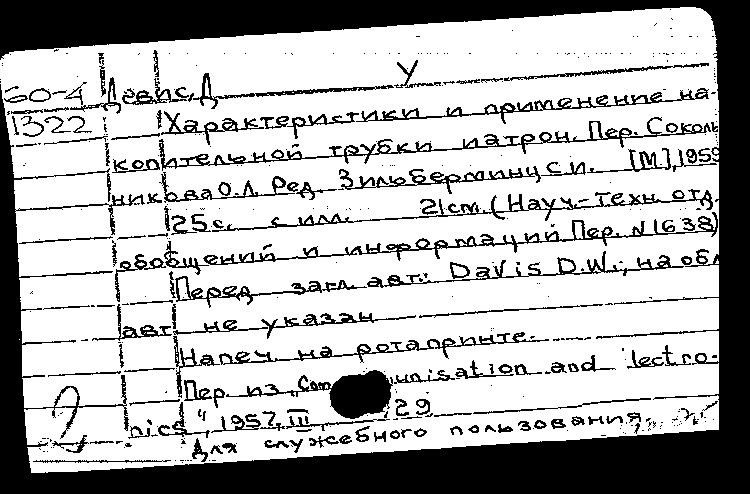 У
60-4 Девис, Д
1322 Характеристики и применение на-
копительной трубки патрон. Пер. Соколь
никова О.Л. Ред. Зильберминц С.И. [М], 1959
25с. с илл. 21см. (Науч.-техн. отд.
обобщений и информаций Пер. N1638)
Перед загл. авт.: Davis D.W.; на обл
авт не указан
Напеч. на ротапринте.
Пер. из „Com unisation and lectro-
nics", 1957, III, 29
2 Для служебного пользования.